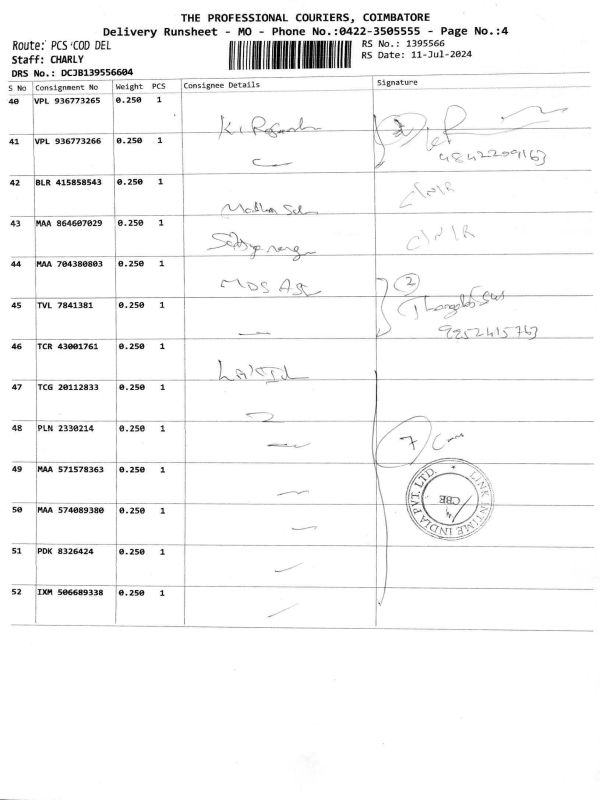 THE PROFESSIONAL COURIERS, COIMBATORE
Delivery Runsheet - MO - Phone No.:0422-3505555 - Page No.:4
Route: PCS COD DEL
RS No.: 1395566
Staff: CHARLY
RS Date: 11-Jul-2024
DRS No.: DCJB139556604
S No Consignment No Weight PCS Consignee Details Signature
40 VPL 936773265 0.250 1
41 VPL 936773266 0.250 1
4842209163
42 BLR 415858543 0.250 1
43 MAA 864607029 0.250 1
44 MAA 704380803 0.250 1
MDS
2
45 TVL 7841381 0.250 1
9252415763
46 TCR 43001761 0.250 1
47 TCG 20112833 0.250 1
48 PLN 2330214 0.250 1
7
49 MAA 571578363 0.250 1
50 MAA 574089380 0.250 1
LINK INTIME INDIA PVT. LTD.
CBE
51 PDK 8326424 0.250 1
52 IXM 506689338 0.250 1